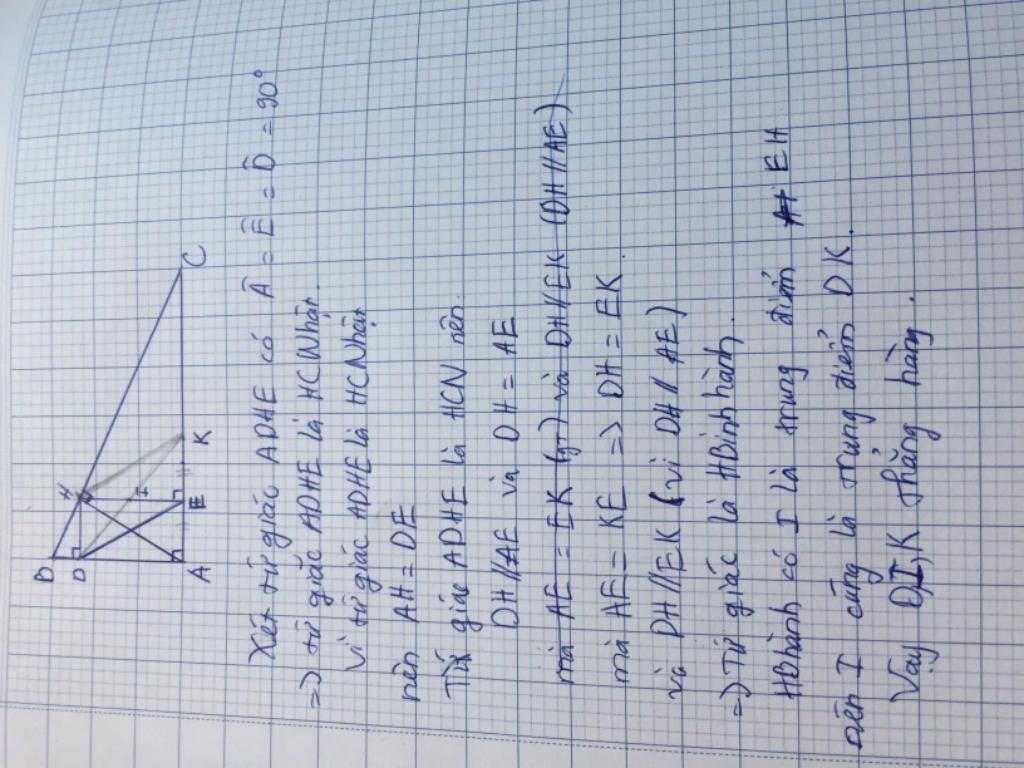 B
D
H
I
A
E
K
C
Xét tứ giác ADHE có Â = Ê = D̂ = 90°
=> tứ giác ADHE là HCNhật.
Vì tứ giác ADHE là HCNhật
nên AH = DE
Tứ giác ADHE là HCN nên
DH // AE và DH = AE
mà AE = EK (gt) và DH // EK (DH // AE)
mà AE = KE => DH = EK
và DH // EK (vì DH // AE)
=> Tứ giác là HBình hành.
HBhành có I là trung điểm EH
nên I cũng là trung điểm DK.
Vậy D,I,K thẳng hàng.